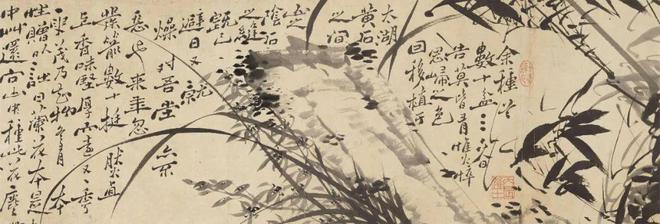 余種蘭
數十盆三春
告莫皆有憔悴
思歸之色
因移植于
太湖
黃石
之間
山之
陰石
之縫
既已
避日又就
燥對吾堂亦
惡也來年忽
發箭數十挺然直
上香味堅厚而遠又一年
更茂乃知物亦各有本
性贈以詩曰蘭花本是
中艸還向山中種此花塵